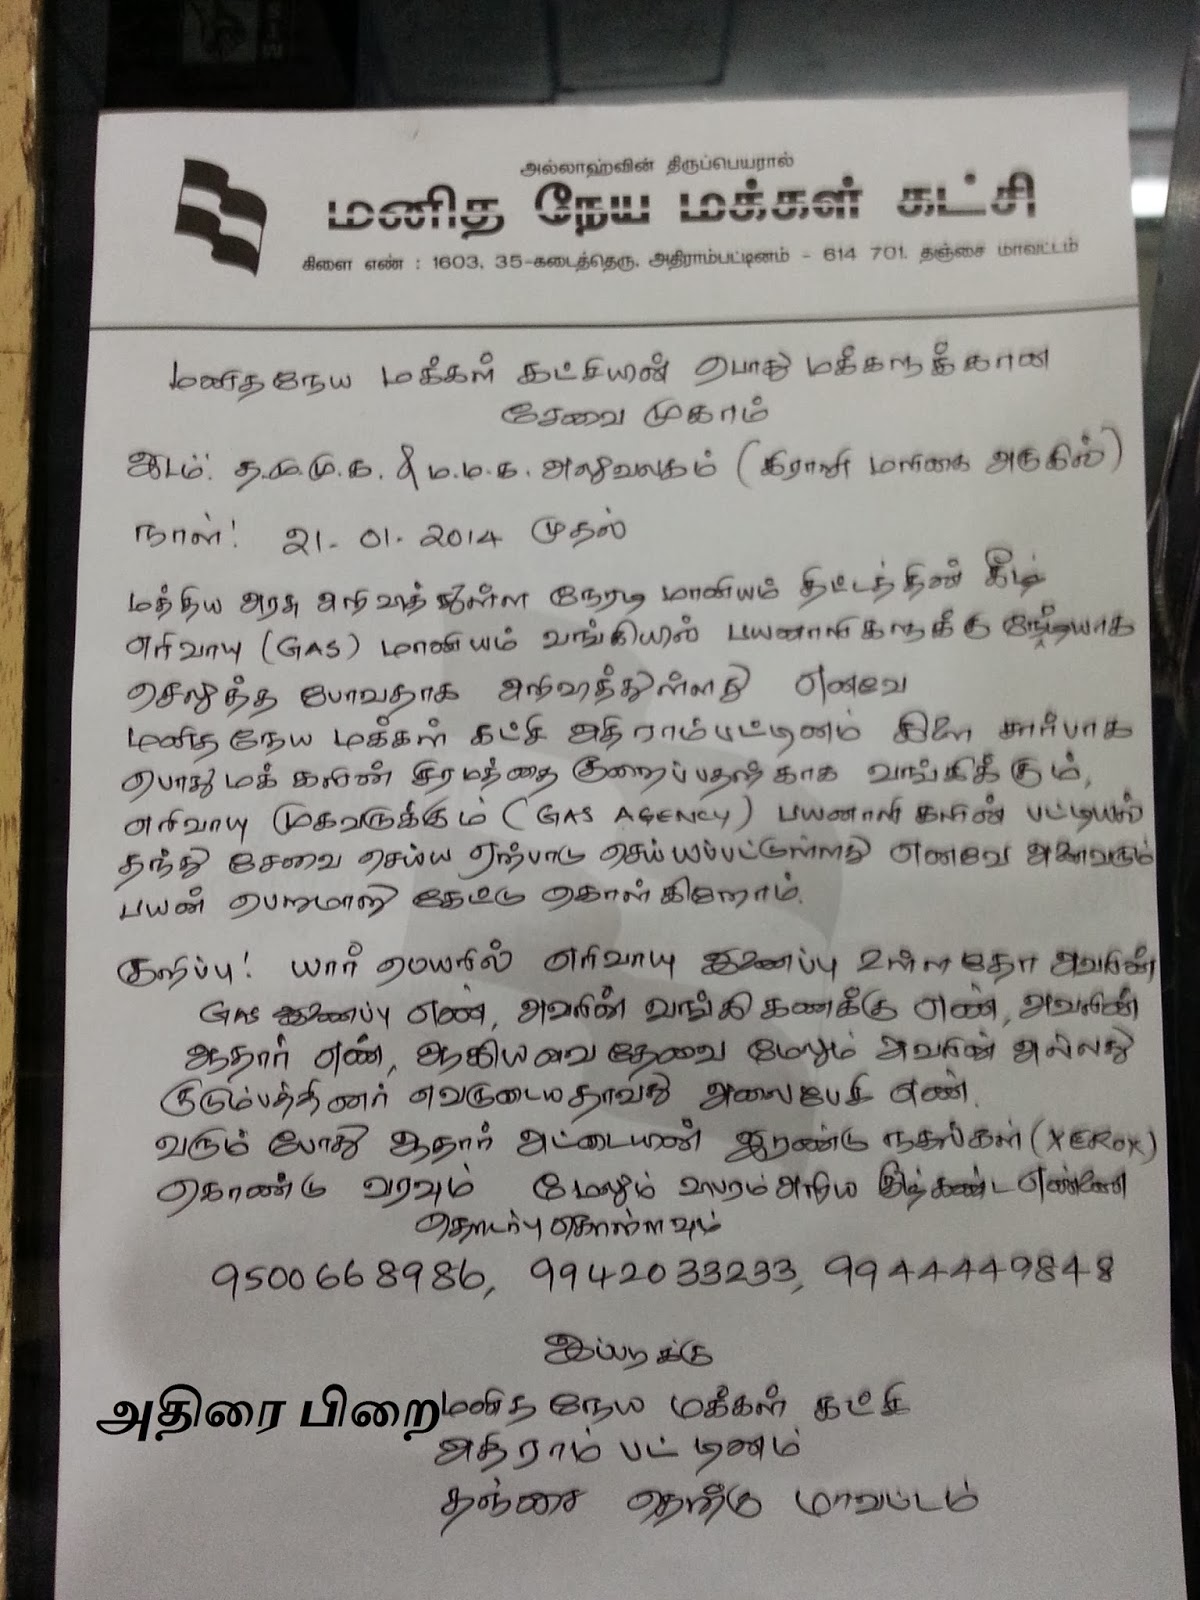 அல்லாஹ்வின் திருப்பெயரால்
மனித நேய மக்கள் கட்சி
கிளை எண் : 1603, 35-கடைத்தெரு, அதிராம்பட்டினம் - 614 701. தஞ்சை மாவட்டம்
மனிதநேய மக்கள் கட்சியின் பொது மக்களுக்கான
சேவை முகாம்
இடம்: த.மு.மு.க. & ம.ம.க. அலுவலகம் (கிராணி மளிகை அருகில்)
நாள்: 21-01-2014 முதல்
மத்திய அரசு அறிவித்துள்ள நேரடி மானியம் திட்டத்தின் கீழ்
எரிவாயு (GAS) மானியம் வங்கியில் பயனாளிகளுக்கு நேரடியாக
செலுத்த போவதாக அறிவித்துள்ளது எனவே
மனித நேய மக்கள் கட்சி அதிராம்பட்டினம் கிளை சார்பாக
பொதுமக்களின் சிரமத்தை குறைப்பதற்காக வங்கிக்கும்,
எரிவாயு முகவருக்கும் (GAS AGENCY) பயனாளிகளின் பட்டியல்
தந்து சேவை செய்ய ஏற்பாடு செய்யப்பட்டுள்ளது எனவே அனைவரும்
பயன் பெறுமாறு கேட்டு கொள்கிறோம்.
குறிப்பு: யார் பெயரில் எரிவாயு இணைப்பு உள்ளதோ அவரின்
GAS இணைப்பு எண், அவரின் வங்கி கணக்கு எண், அவரின்
ஆதார் எண், ஆகியவை தேவை மேலும் அவரின் அல்லது
குடும்பத்தினர் எவருடையதாவது அலைபேசி எண்.
வரும் போது ஆதார் அட்டையின் இரண்டு நகல்கள் (XEROX)
கொண்டு வரவும் மேலும் விபரம் அறிய இதிகண்ட எண்ணை
தொடர்பு கொள்ளவும்
9500668986, 9942033233, 9944449848
இப்படிக்கு
அதிரை பிறை
மனித நேய மக்கள் கட்சி
அதிராம்பட்டினம்
தஞ்சை தெற்கு மாவட்டம்